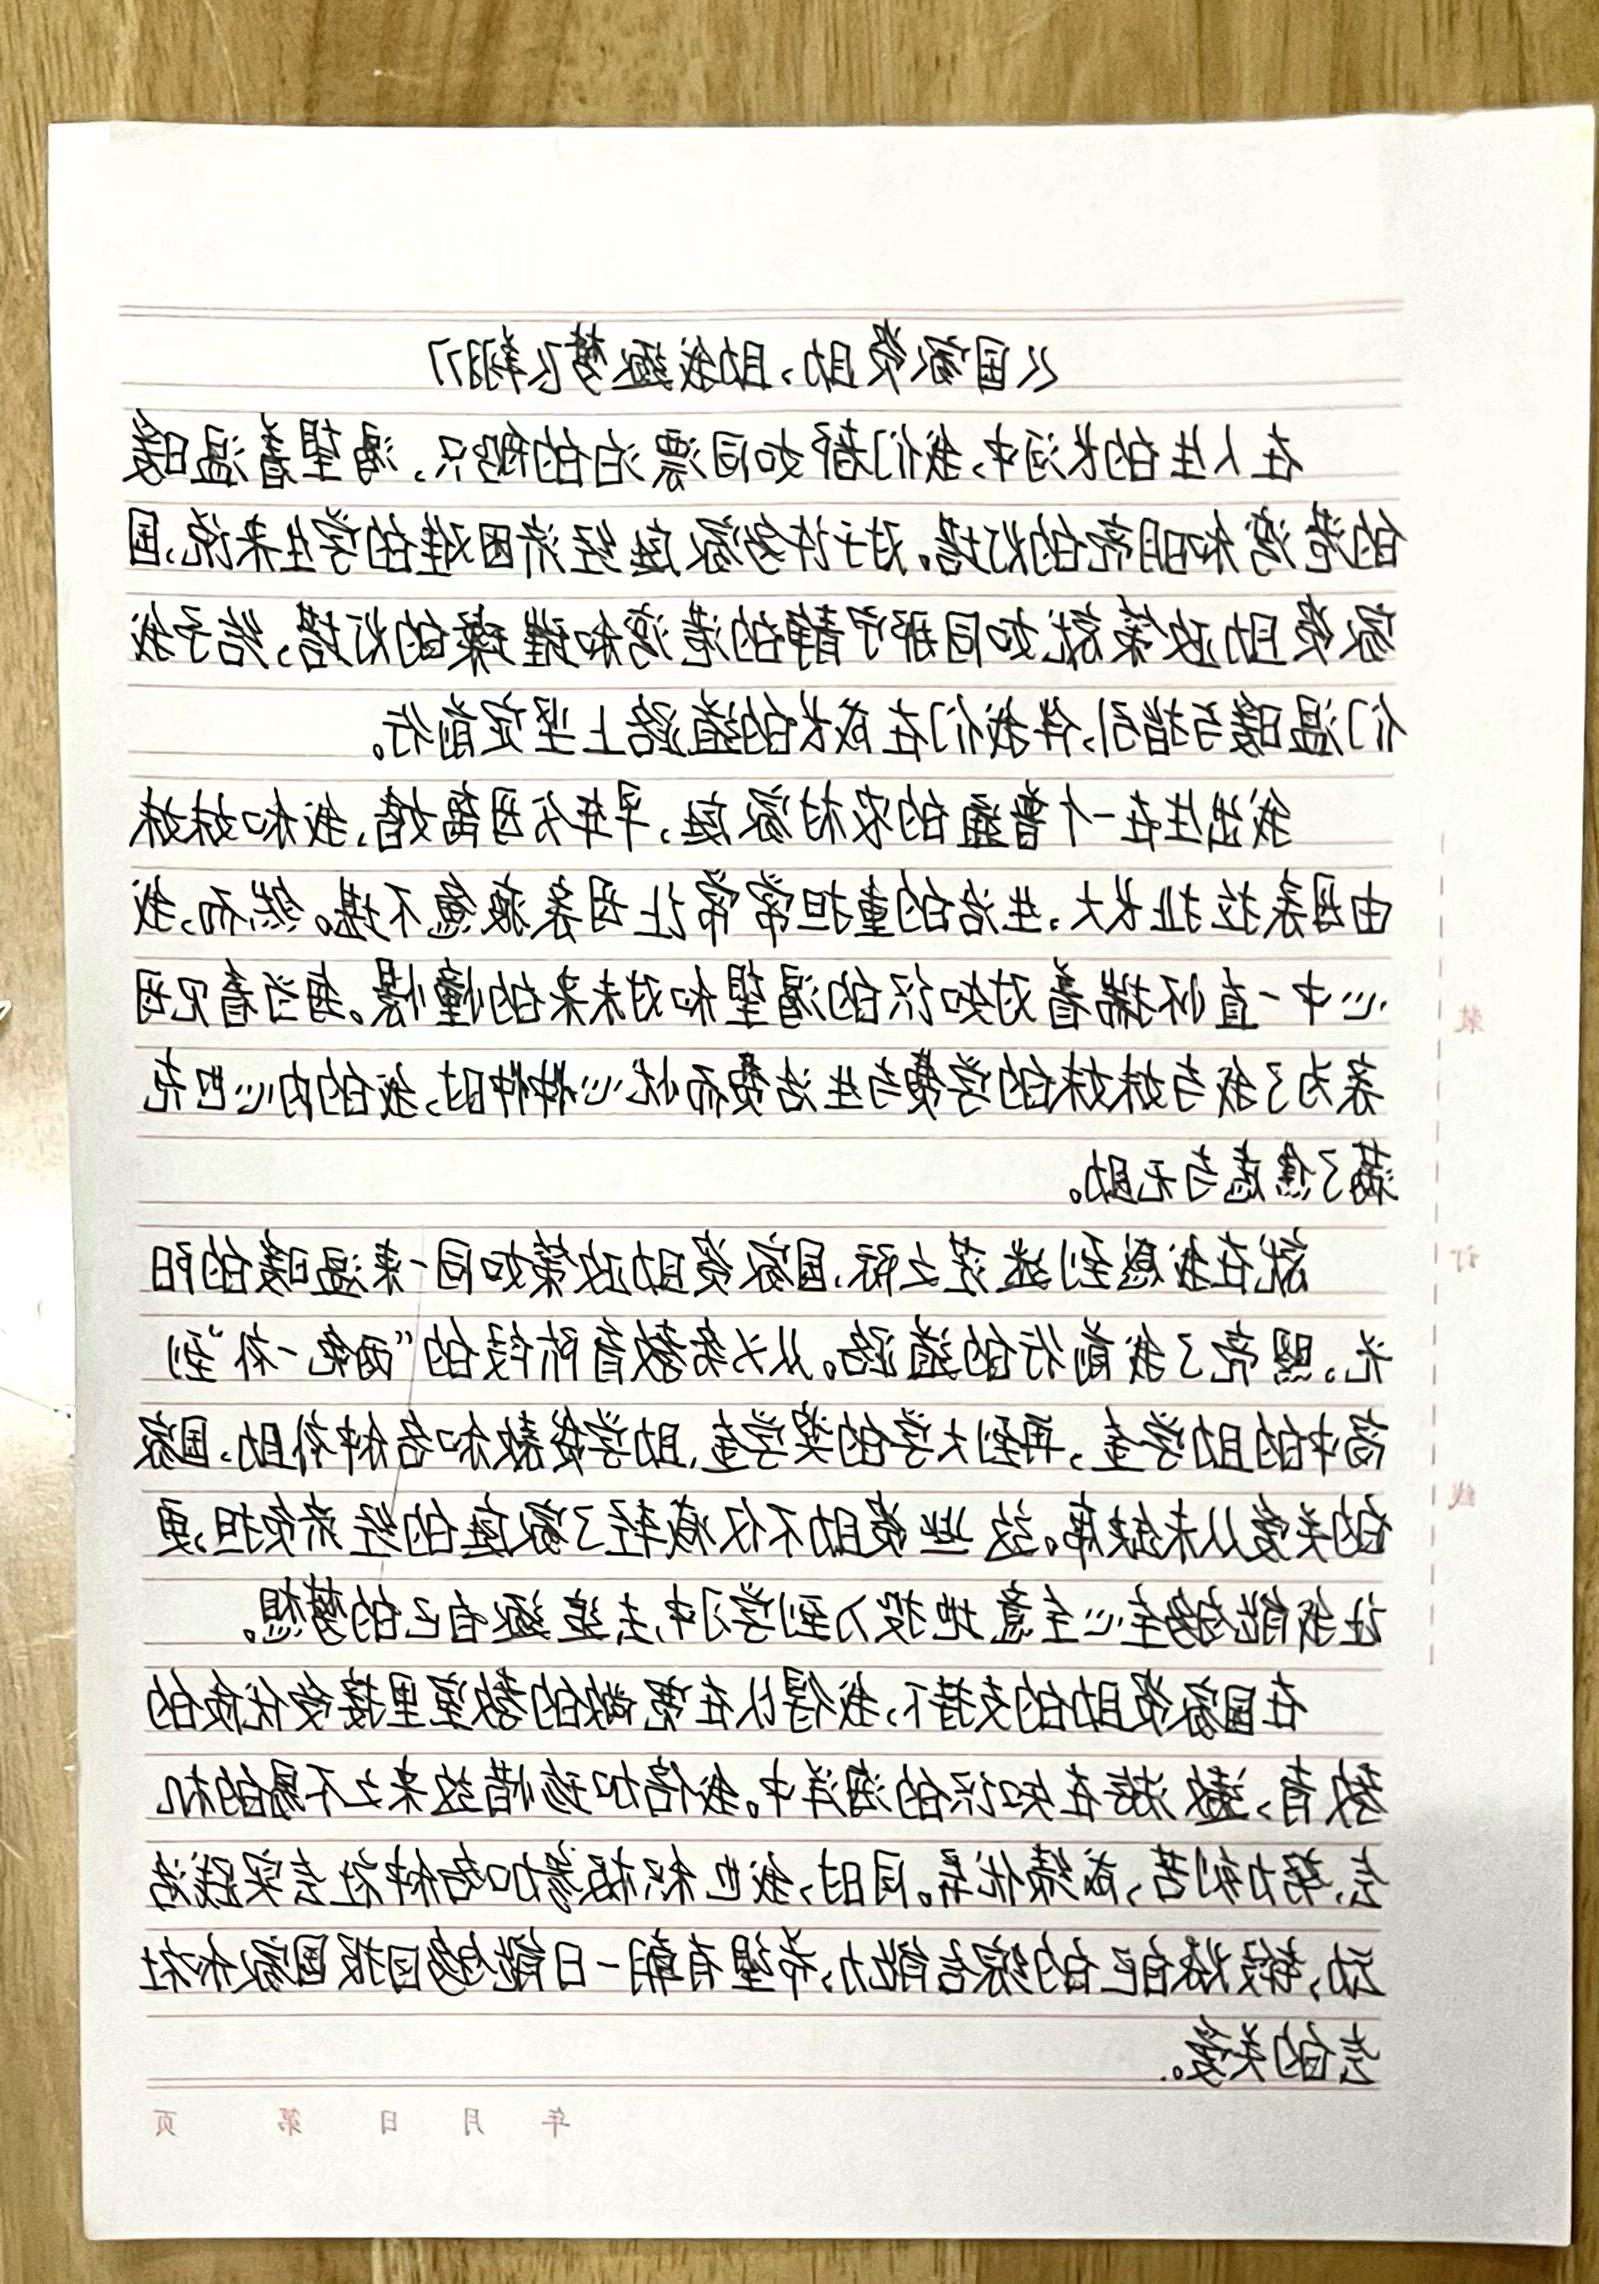 《国家资助，助我逐梦飞翔》
在人生的长河中，我们都如同漂泊的船只，渴望着温暖
的港湾和明亮的灯塔。对于许多家庭经济困难的学生来说，国
家资助政策就如同那宁静的港湾和璀璨的灯塔，给予我
们温暖与指引，伴我们在成长的道路上坚定前行。
我出生在一个普通的农村家庭，早年父母离婚，我和妹妹
由母亲拉扯长大，生活的重担常常让母亲疲惫不堪。然而，我
心中一直怀揣着对知识的渴望和对未来的憧憬。每当看见母
亲为了我与妹妹的学费与生活费而忧心忡忡时，我的内心也充
满了焦虑与无助。
就在我感到迷茫之际，国家资助政策如同一束温暖的阳
光，照亮了我前行的道路。从义务教育阶段的“两免一补”到
高中的助学金，再到大学的奖学金、助学贷款和各种补助，国家
的关爱从未缺席。这些资助不仅减轻了家庭的经济负担，更
让我能够全心全意地投入到学习中，去追逐自己的梦想。
在国家资助的支持下，我得以在宽敞的教室里接受优质的
教育，遨游在知识的海洋中。我倍加珍惜这来之不易的机
会，努力刻苦，成绩优异。同时，我也积极参加各种社会实践活
动，锻炼自己的综合能力，希望有朝一日能够回报国家和社
会的关爱。
装
订
线
年 月 日 第 页